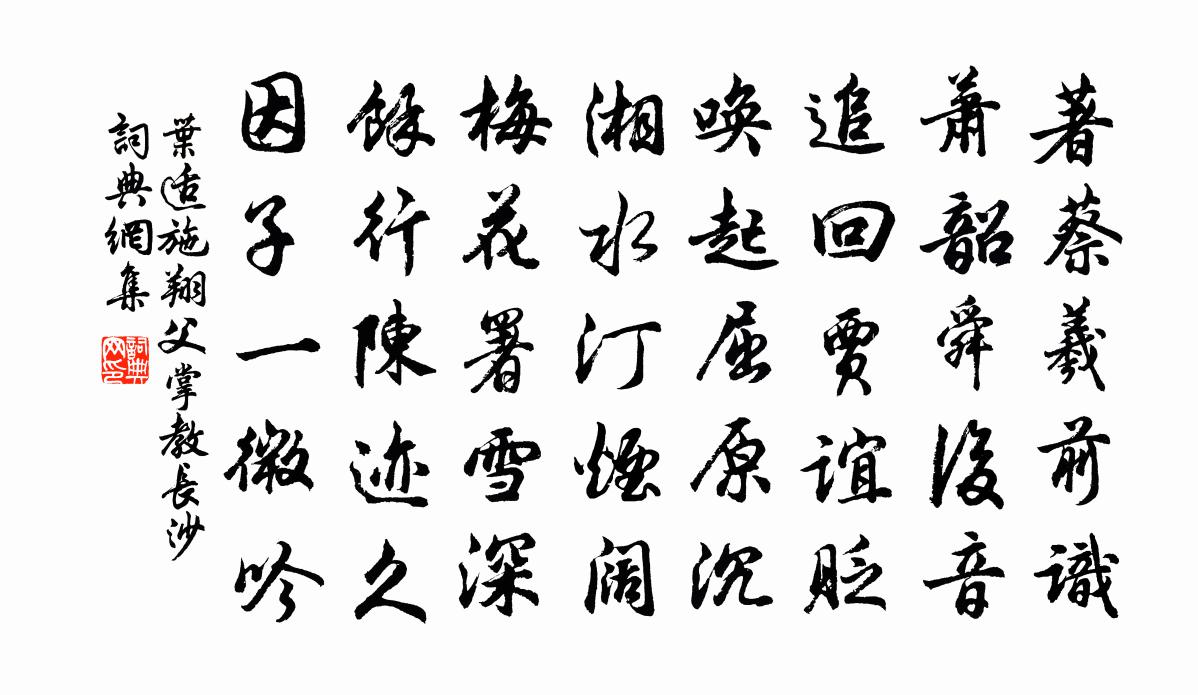 著蔡羲前識
蕭韶舜後音
追回賈誼貶
喚起屈原沉
湘水汀煙闊
梅花署雪深
餘行陳迹久
因子一微吟
葉适施翔父掌教長沙
詞典網集
詞典网印